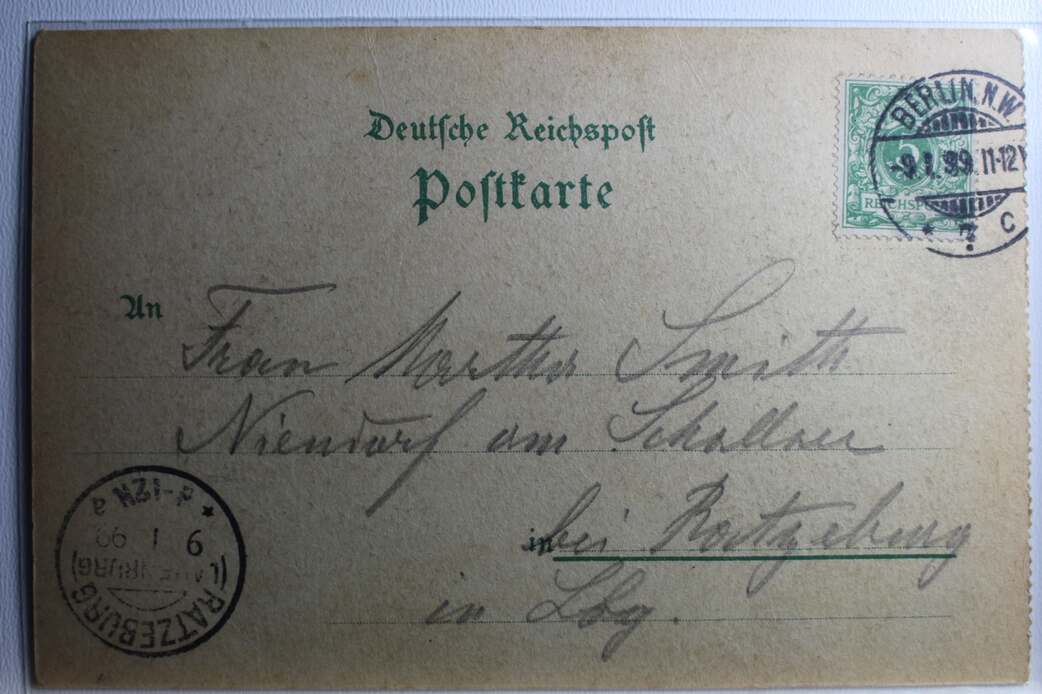 Deutsche Reichspost
Postkarte
BERLIN. N.W.
-9.1.99.11-12V
* 7. c
5
REICHSPOST
An Frau Martha Smith
Niendorf am Schallsee
in bei Ratzeburg
in Lbg.
RATZEBURG
(LAUENBURG)
9 1 99